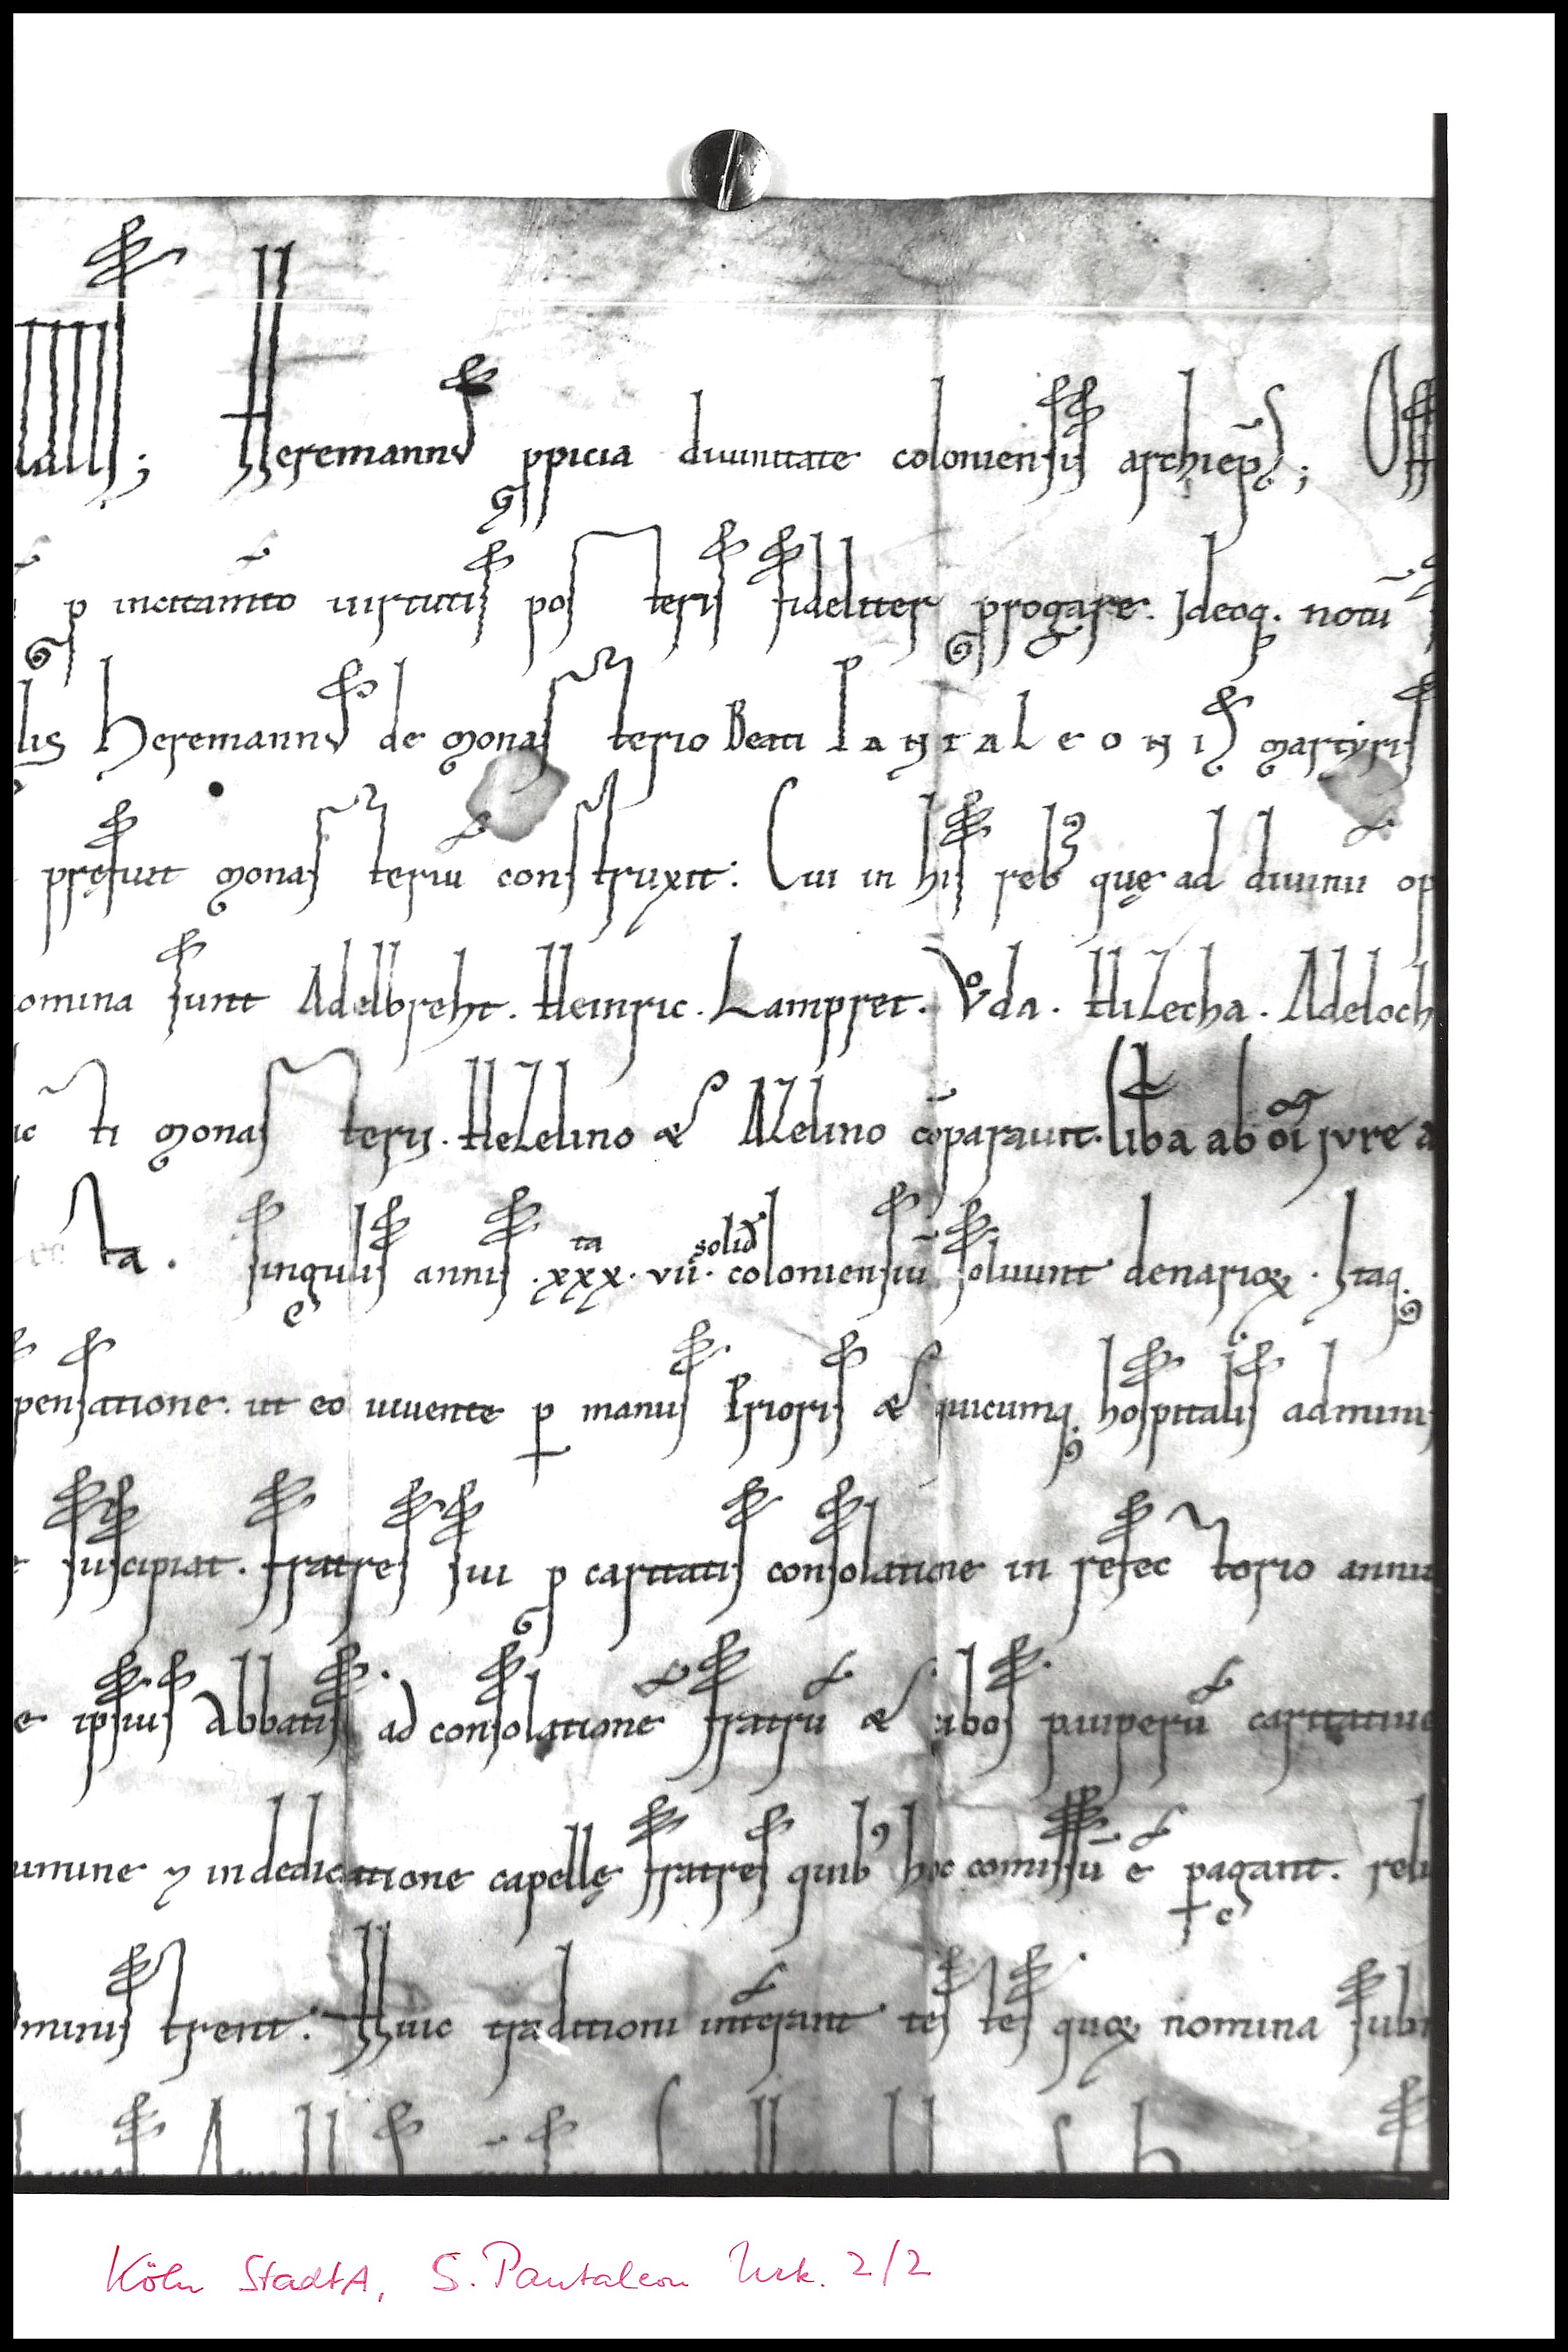 Heremannus ppicia diuinitate coloniensis archiep̄s; Off
p incitam̄to uirtutis posteris fideliter progare. Jdeoq. notū
lis heremannus de monasterio Beati Pantaleonis martyris
pręfuit monasteriū construxit: Cui in his reb; quę ad diuinū op
omina sunt Adelbreht. Heinric. Lampret. Vͦda. Hizecha. Adeloch
ti monasterij. Hezelino & Azelino cōparauit. lib̄a ab om̄i jure a
ta. singulis annis .xxx.ta vii. solid coloniensiū soluunt denarioꝝ. Itaq.
pensatione. ut eo uiuente ꝑ manus Prioris & quicumq. hospitalis adminis
suscipiat. fratres sui p caritatis consolatione in refectorio annu
e ipsius abbatis ad consolationē fratrū & cibos pauperū caritatiue
umine ⁊ in dedicatione capellę fratres quib' hoc comissū ē pagant. reli
minis trent. Huic traditioni int̄erant testes quoꝝ nomina sub
Köln StadtA, S. Pantaleon Urk. 2/2